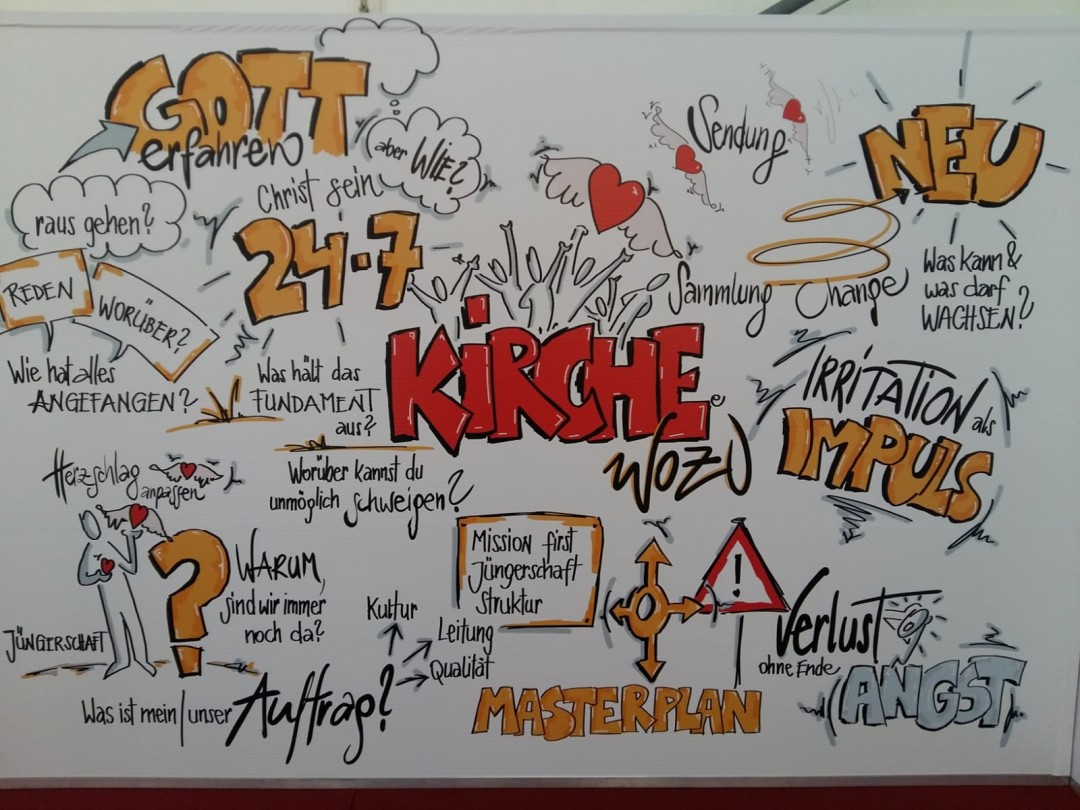 GOTT
erfahren
aber WIE?
Christ sein
24-7
raus gehen?
REDEN
WORÜBER?
Wie hat alles
ANGEFANGEN?
Was hält das
FUNDAMENT
aus?
Worüber kannst du
unmöglich schweigen?
Sendung
Sammlung
Change
NEU
Was kann &
was darf
WACHSEN?
KiRCHE
WOZU
IRRITATION als
IMPULS
Herzschlag
anpassen
JÜNGERSCHAFT
?
WARUM,
sind wir immer
noch da?
Was ist mein/unser
Auftrag?
Kultur
Leitung
Qualität
Mission first
Jüngerschaft
Struktur
MASTERPLAN
!
Verlust
ohne Ende
ANGST